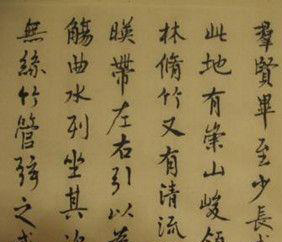 羣賢畢至少長
此地有崇山峻領
林脩竹又有清流
暎帶左右引以為
觴曲水列坐其次
無絲竹管弦之